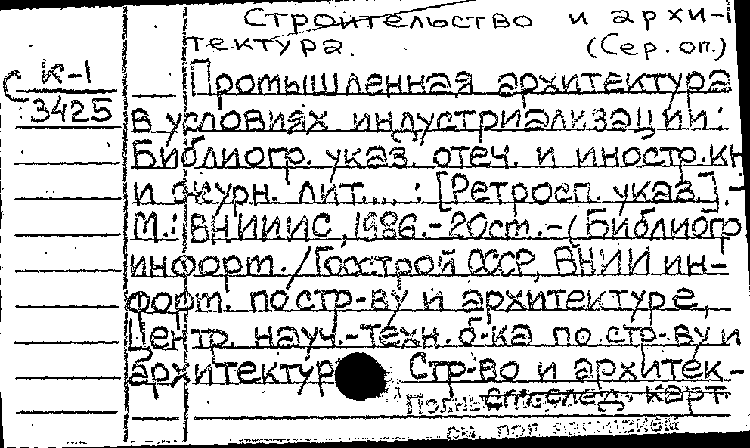 Строительство и архи-
тектура. (Сер. оп.)
С К-1
3425
Промышленная архитектура
в условиях индустриализации:
Библиогр. указ. отеч. и иностр. кн
и журн. лит... : [Ретросп. указ.].-
М.: ВНИИИС, 1986.-20см.-(Библиогр
информ./Госстрой СССР, ВНИИ ин-
форм. по стр-ву и архитектуре,
Центр. науч.-техн. б-ка по стр-ву и
архитектур Стр-во и архитек-
см. след. карт.
см. под